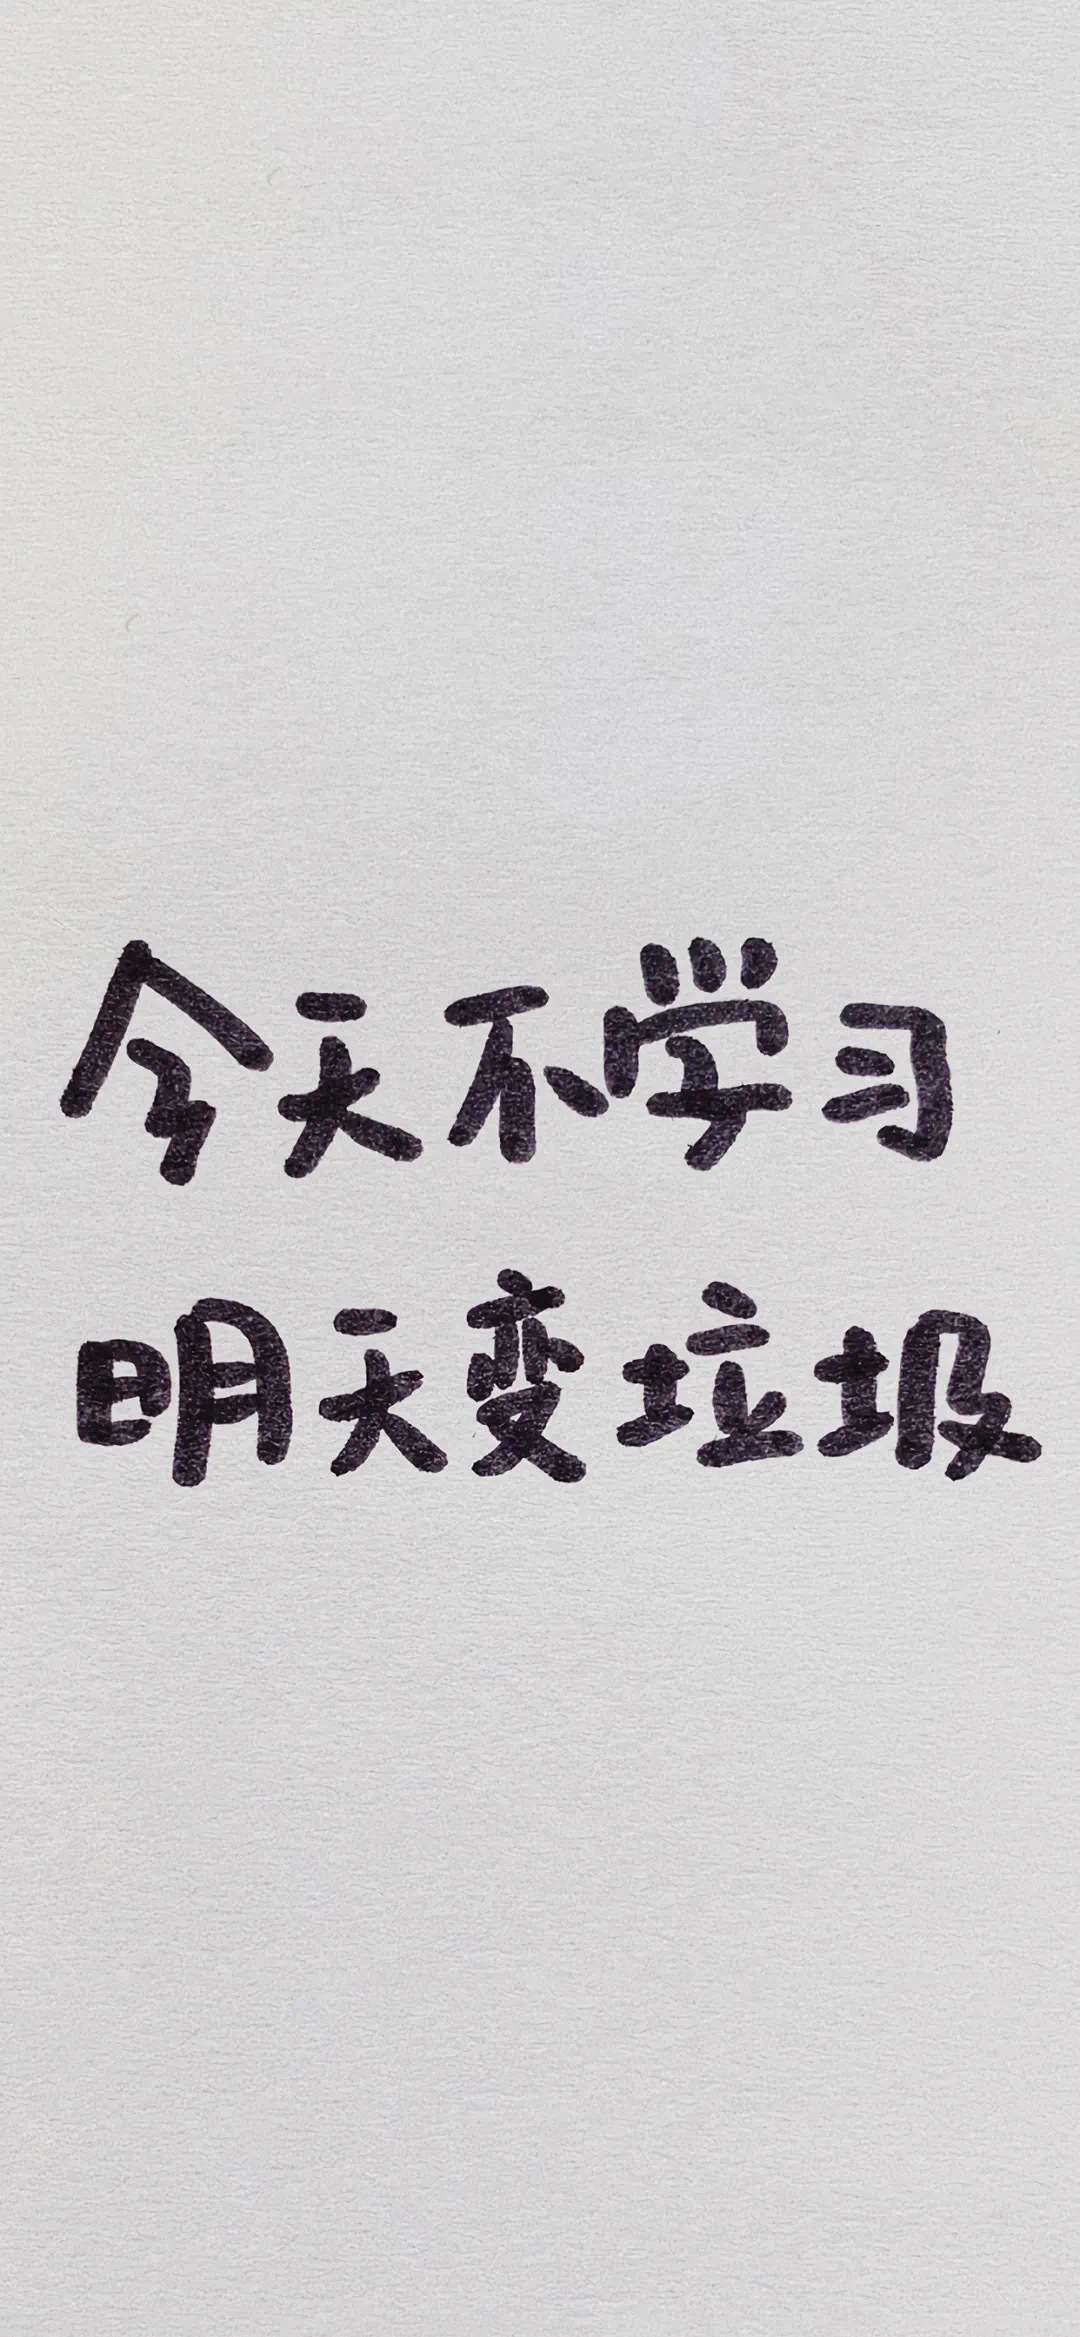 今天不学习
明天变垃圾